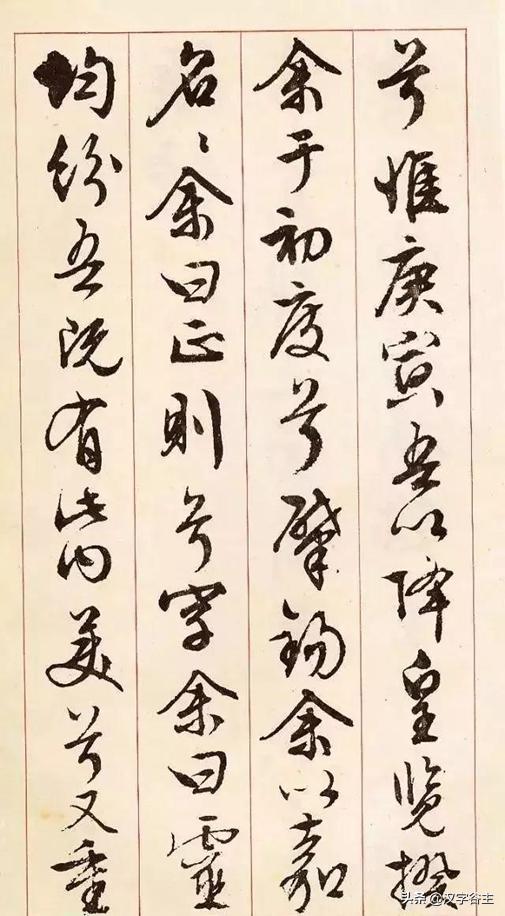 兮惟庚寅吾以降皇览揆
余于初度兮肇锡余以嘉
名名余曰正则兮字余曰靈
均纷吾既有此内美兮又重
头条@汉字谷主